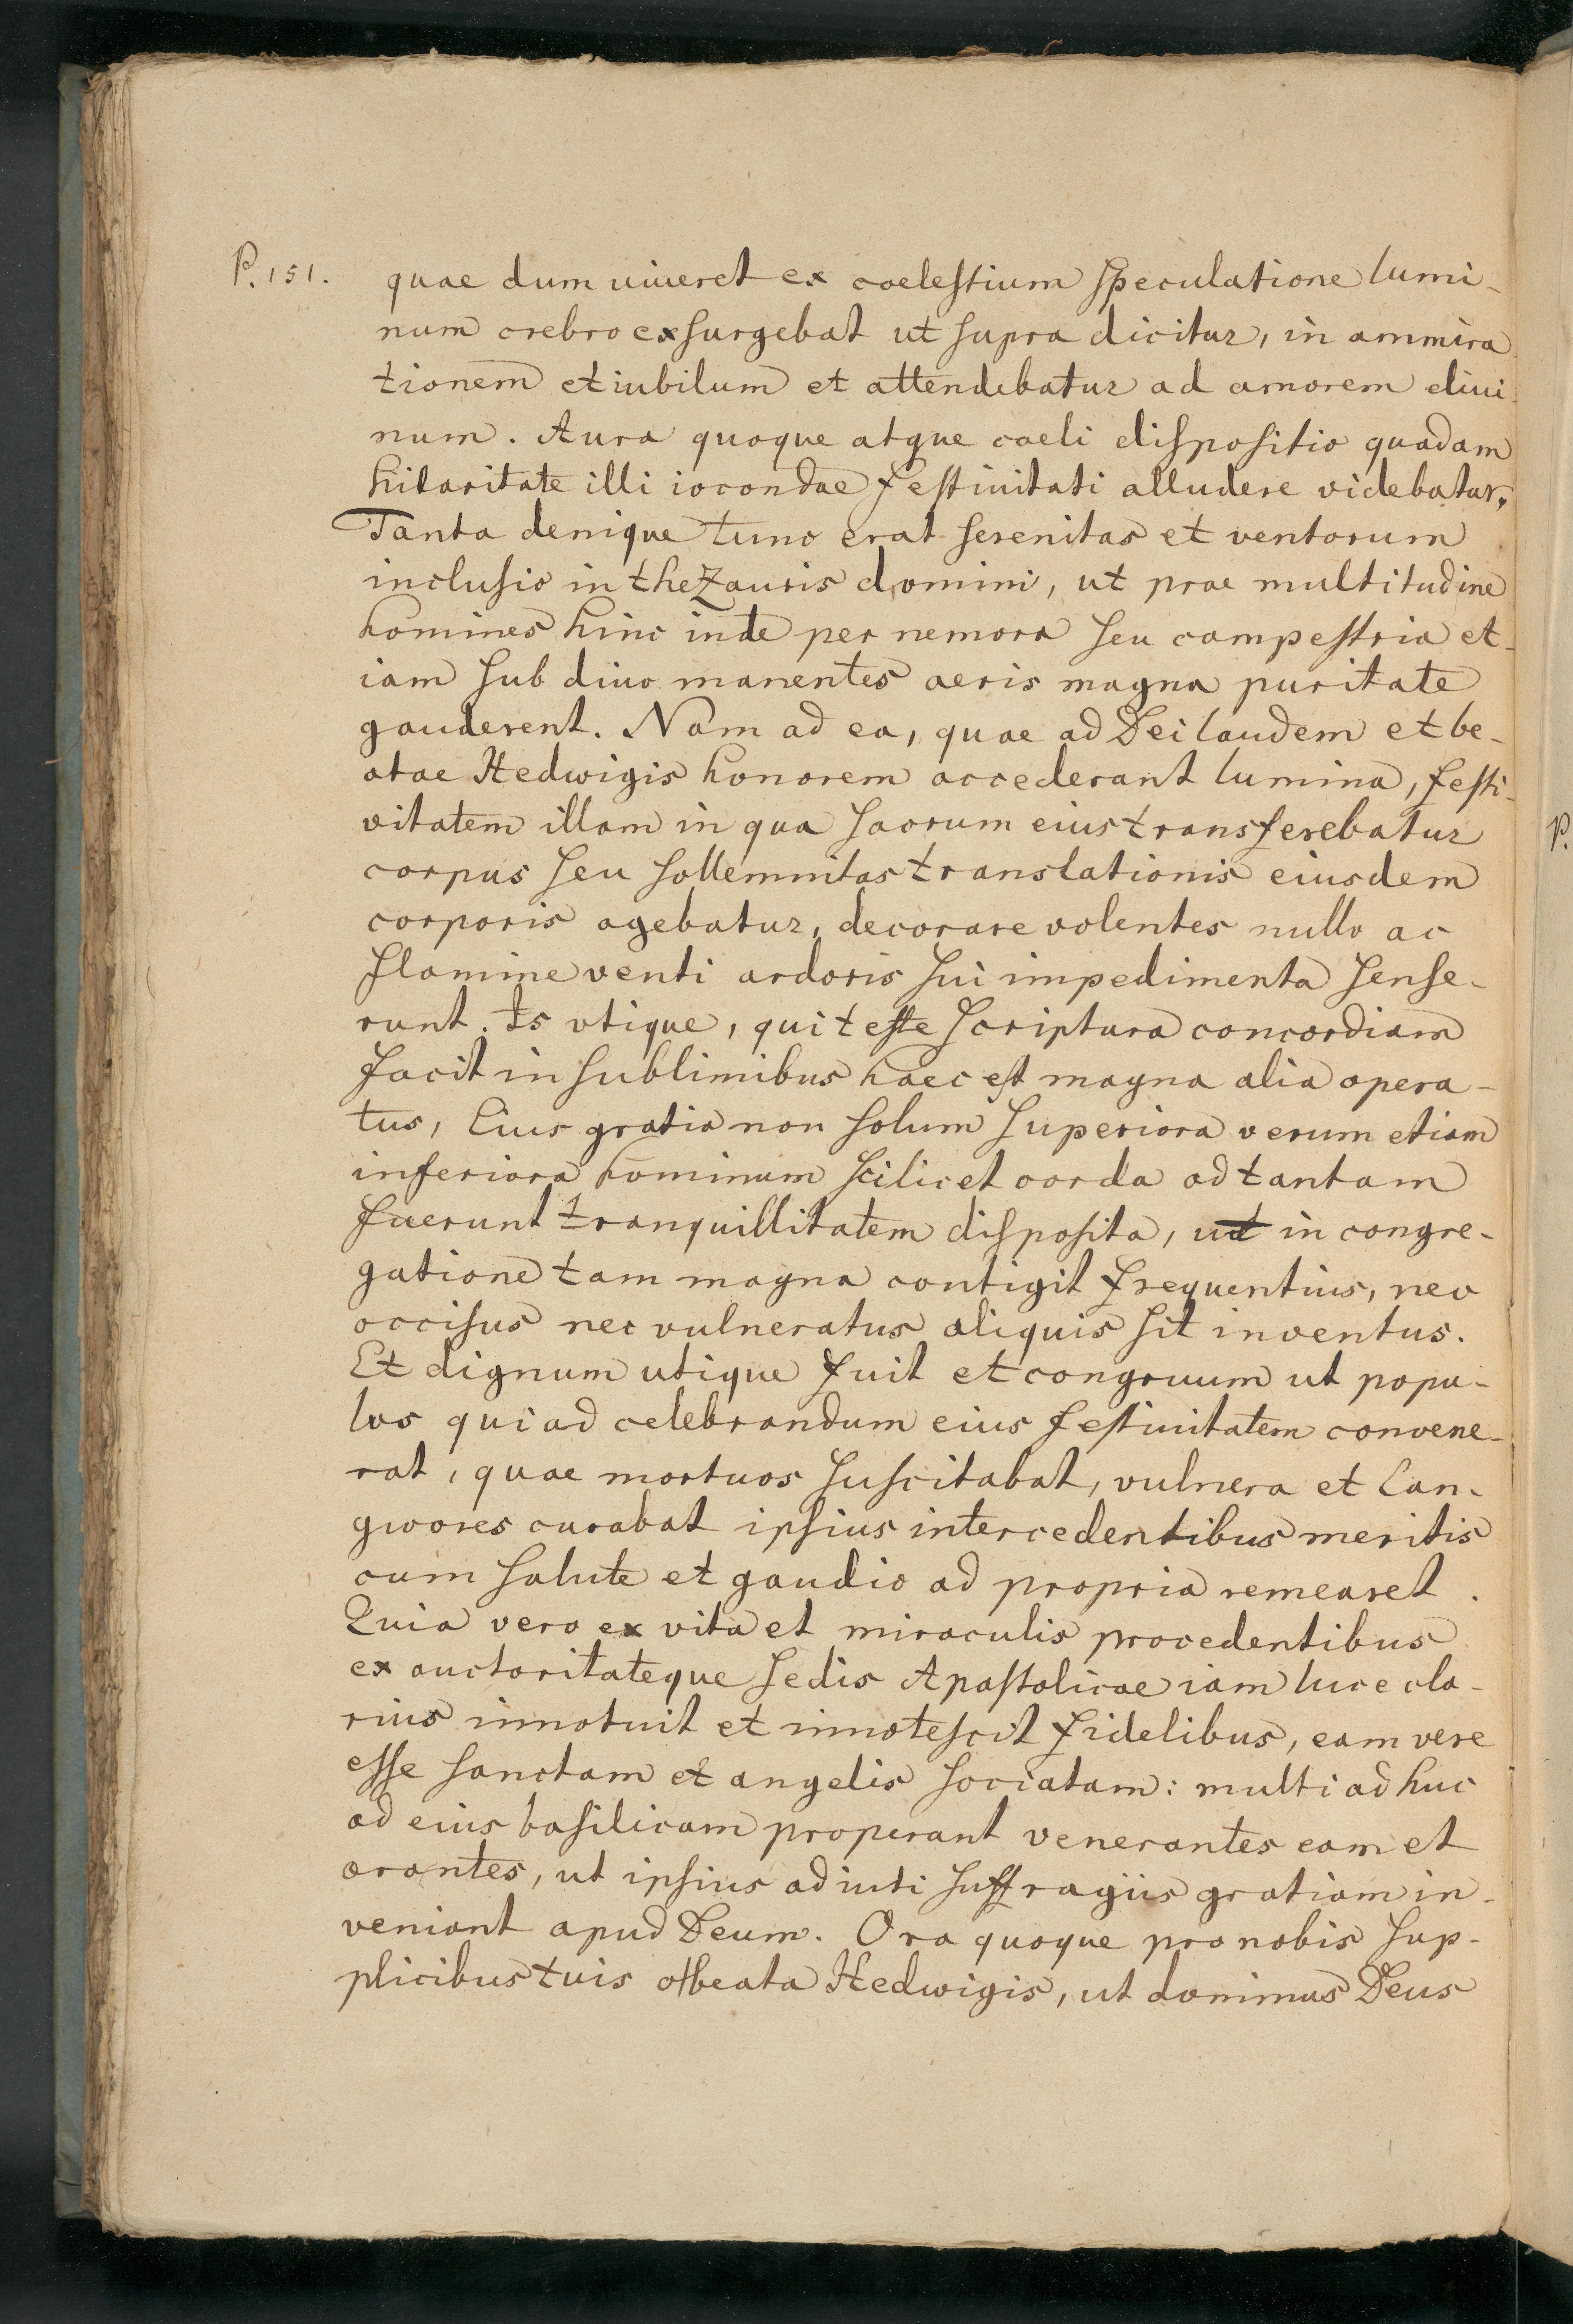 P. 151. quae dum uiueret ex coelestium speculatione lumi-
num crebro exsurgebat ut supra dicitur, in ammira-
tionem et iubilum et attendebatur ad amorem diui-
num. Aura quoque atque coeli dispositio quadam
hilaritate illi iocondae festiuitati alludere videbatur,
Tanta denique tunc erat serenitas et ventorum
inclusio in thezauris domini, ut prae multitudine
homines hinc inde per nemora seu campestria et-
iam sub diuo manentes aeris magna puritate
gauderent. Nam ad ea, quae ad Dei laudem et be-
atae Hedwigis honorem accederant lumina, festi-
vitatem illam in qua sacrum eius transferebatur
corpus seu sollemnitas translationis eiusdem
corporis agebatur, decorare volentes nullo ac
flamine venti ardoris sui impedimenta sense-
runt. Is utique, qui teste scriptura concordiam
facit in sublimibus haec est magna alia opera-
tus, Cuius gratia non solum superiora verum etiam
inferiora hominum scilicet corda ad tantam
fuerunt tranquillitatem disposita, ut in congre-
gatione tam magna contigit frequentius, nec
occisus nec vulneratus aliquis sit inventus.
Et dignum utique fuit et congruum ut popu-
lus qui ad celebrandum eius festiuitatem convene-
rat, quae mortuos suscitabat, vulnera et Lan-
gwores curabat ipsius intercedentibus meritis
cum salute et gaudio ad propria remearet.
Quia vero ex vita et miraculis procedentibus
ex auctoritateque sedis Apostolicae iam luce cla-
rius innotuit et innotescit fidelibus, eam vere
esse sanctam et angelis sociatam: multi ad huc
ad eius basilicam properant venerantes eam et
orantes, ut ipsius adiuti suffragiis gratiam in-
veniant apud Deum. Ora quoque pro nobis sup-
plicibus tuis o beata Hedwigis, ut dominus Deus
P.